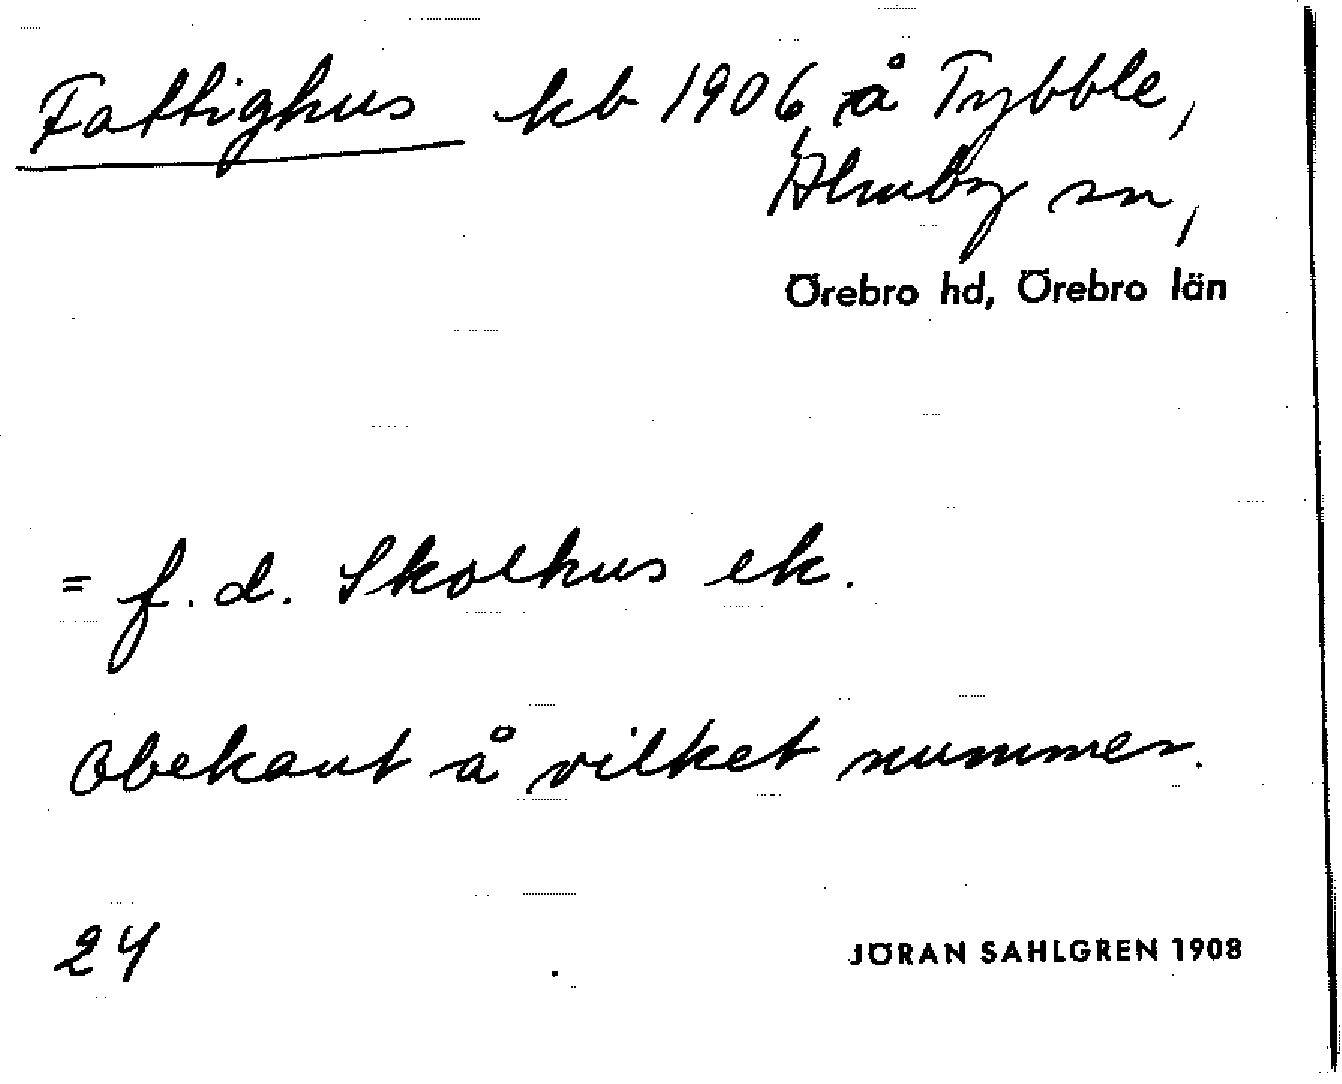 Fattighus kb 1906 å Tybble,
Almby sn,
Örebro hd, Örebro län
= f. d. Skolhus ek.
Obekant å vilket nummer.
24
JÖRAN SAHLGREN 1908